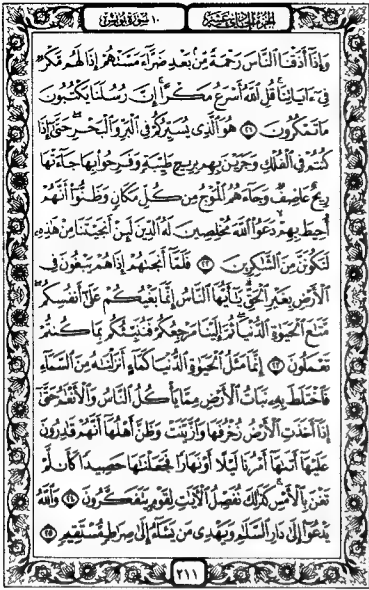 الجزء الحادي عشر ١٠ سورة يونس
وَإِذَآ أَذَقۡنَا ٱلنَّاسَ رَحۡمَةٗ مِّنۢ بَعۡدِ ضَرَّآءَ مَسَّتۡهُمۡ إِذَا لَهُم مَّكۡرٞ
فِيٓ ءَايَاتِنَاۚ قُلِ ٱللَّهُ أَسۡرَعُ مَكۡرًاۚ إِنَّ رُسُلَنَا يَكۡتُبُونَ
مَا تَمۡكُرُونَ ٢١ هُوَ ٱلَّذِي يُسَيِّرُكُمۡ فِي ٱلۡبَرِّ وَٱلۡبَحۡرِۖ حَتَّىٰٓ إِذَا
كُنتُمۡ فِي ٱلۡفُلۡكِ وَجَرَيۡنَ بِهِم بِرِيحٖ طَيِّبَةٖ وَفَرِحُواْ بِهَا جَآءَتۡهَا
رِيحٌ عَاصِفٞ وَجَآءَهُمُ ٱلۡمَوۡجُ مِن كُلِّ مَكَانٖ وَظَنُّوٓاْ أَنَّهُمۡ
أُحِيطَ بِهِمۡ دَعَوُاْ ٱللَّهَ مُخۡلِصِينَ لَهُ ٱلدِّينَ لَئِنۡ أَنجَيۡتَنَا مِنۡ هَٰذِهِۦ
لَنَكُونَنَّ مِنَ ٱلشَّٰكِرِينَ ٢٢ فَلَمَّآ أَنجَىٰهُمۡ إِذَا هُمۡ يَبۡغُونَ فِي
ٱلۡأَرۡضِ بِغَيۡرِ ٱلۡحَقِّۗ يَٰٓأَيُّهَا ٱلنَّاسُ إِنَّمَا بَغۡيُكُمۡ عَلَىٰٓ أَنفُسِكُمۖ
مَّتَٰعَ ٱلۡحَيَوٰةِ ٱلدُّنۡيَاۖ ثُمَّ إِلَيۡنَا مَرۡجِعُكُمۡ فَنُنَبِّئُكُم بِمَا كُنتُمۡ
تَعۡمَلُونَ ٢٣ إِنَّمَا مَثَلُ ٱلۡحَيَوٰةِ ٱلدُّنۡيَا كَمَآءٍ أَنزَلۡنَٰهُ مِنَ ٱلسَّمَآءِ
فَٱخۡتَلَطَ بِهِۦ نَبَاتُ ٱلۡأَرۡضِ مِمَّا يَأۡكُلُ ٱلنَّاسُ وَٱلۡأَنۡعَٰمُ حَتَّىٰٓ
إِذَآ أَخَذَتِ ٱلۡأَرۡضُ زُخۡرُفَهَا وَٱزَّيَّنَتۡ وَظَنَّ أَهۡلُهَآ أَنَّهُمۡ قَٰدِرُونَ
عَلَيۡهَآ أَتَىٰهَآ أَمۡرُنَا لَيۡلًا أَوۡ نَهَارٗا فَجَعَلۡنَٰهَا حَصِيدٗا كَأَن لَّمۡ
تَغۡنَ بِٱلۡأَمۡسِۚ كَذَٰلِكَ نُفَصِّلُ ٱلۡأٓيَٰتِ لِقَوۡمٖ يَتَفَكَّرُونَ ٢٤ وَٱللَّهُ
يَدۡعُوٓاْ إِلَىٰ دَارِ ٱلسَّلَٰمِ وَيَهۡدِي مَن يَشَآءُ إِلَىٰ صِرَٰطٖ مُّسۡتَقِيمٖ ٢٥
٢١١